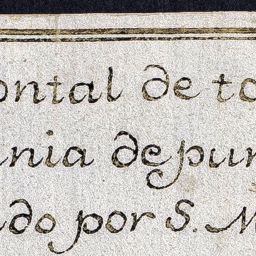 ontal de to
ania de pun
do por S. M